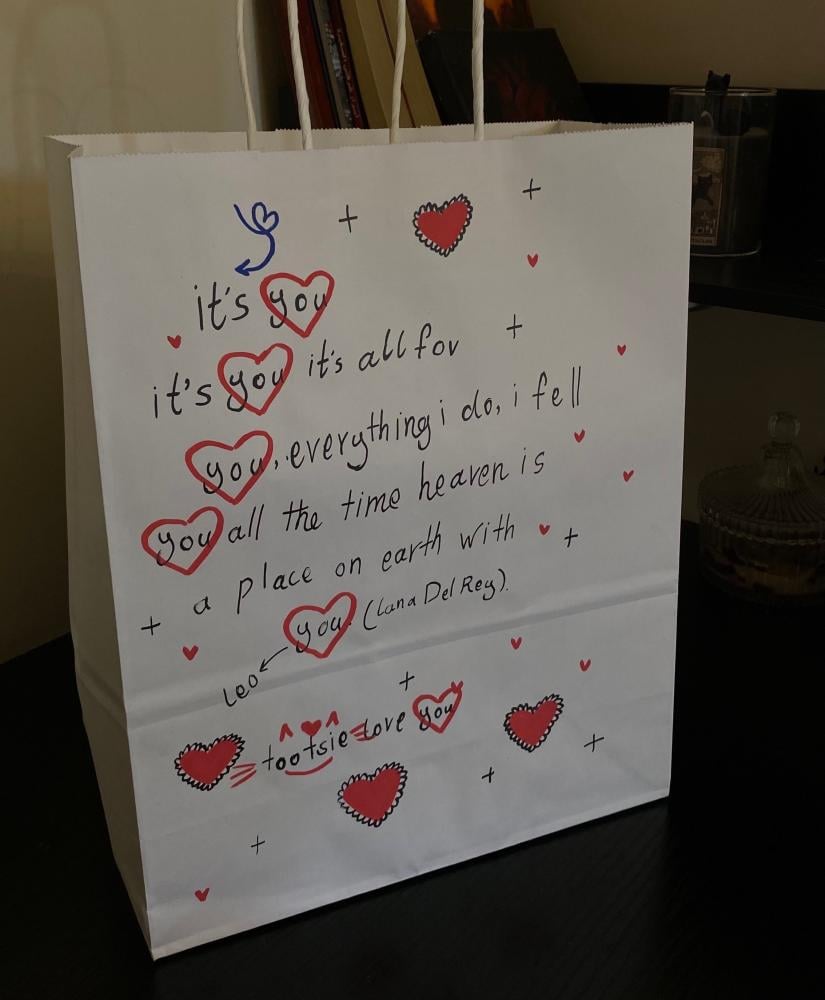 it's you
it's you it's all for
you, everything i do, i fell
you all the time heaven is
a place on earth with
you. (Lana Del Rey).
Leo
tootsie love you